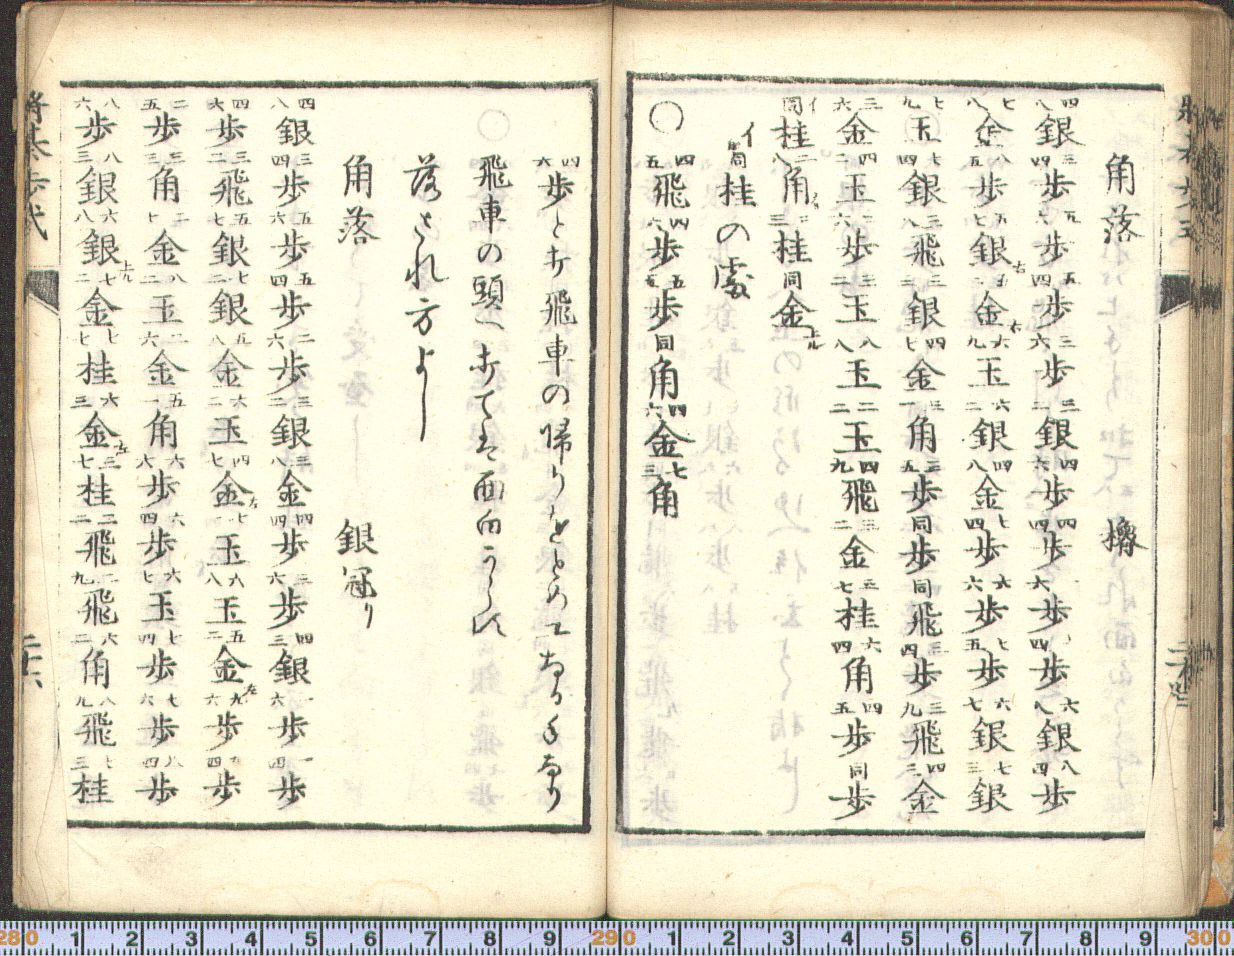 角落　櫓
四八銀 三四歩 五六歩 五四歩 三六歩 三二銀 四六歩 四四歩 六歩 四歩 六八銀 八四歩
七八金 八五歩 七七銀 五二金右 六九玉 六二銀 四八金 七四歩 六六歩 歩 六七銀 七三銀
七九玉 七四銀 三八飛 三三銀 四七金 三一角 三五歩 同歩 同飛 三四歩 三九飛 四三金
三六金 四二玉 二六歩 三二玉 八八玉 二二玉 四九飛 三二金 三七桂 六四角 四五歩 同歩
イ同桂 二八角ナル 三三桂 同金上ル
イ同桂の處
○四五飛 四六歩 五五歩 同角 四六金 七三角
四六歩と打飛車の帰りをとめになる手なり
○飛車の頭へ打ては面白からず
落され方よし
角落　銀冠り
四八銀 三四歩 五六歩 五四歩 二六歩 三二銀 三八金 四四歩 三六歩 四三銀 一六歩 一四歩
四六歩 三二飛 五七銀 七二銀 五八金 六二玉 四七金左 七一玉 六八玉 五二金左 九六歩 九四歩
二五歩 三三角 二七金 八二玉 二六金 五一角 六六歩 六四歩 六七玉 七四歩 七六歩 八四歩
八六歩 八三銀 六八銀 七二金上ル 七七桂 六三金左 三七桂 二二飛 二九飛 六二角 八九飛 七三桂